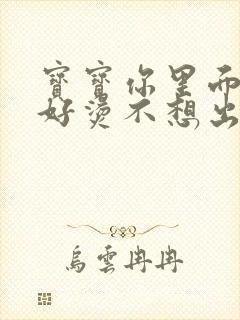 寶寶你里面
好燙不想出
烏雲冉冉